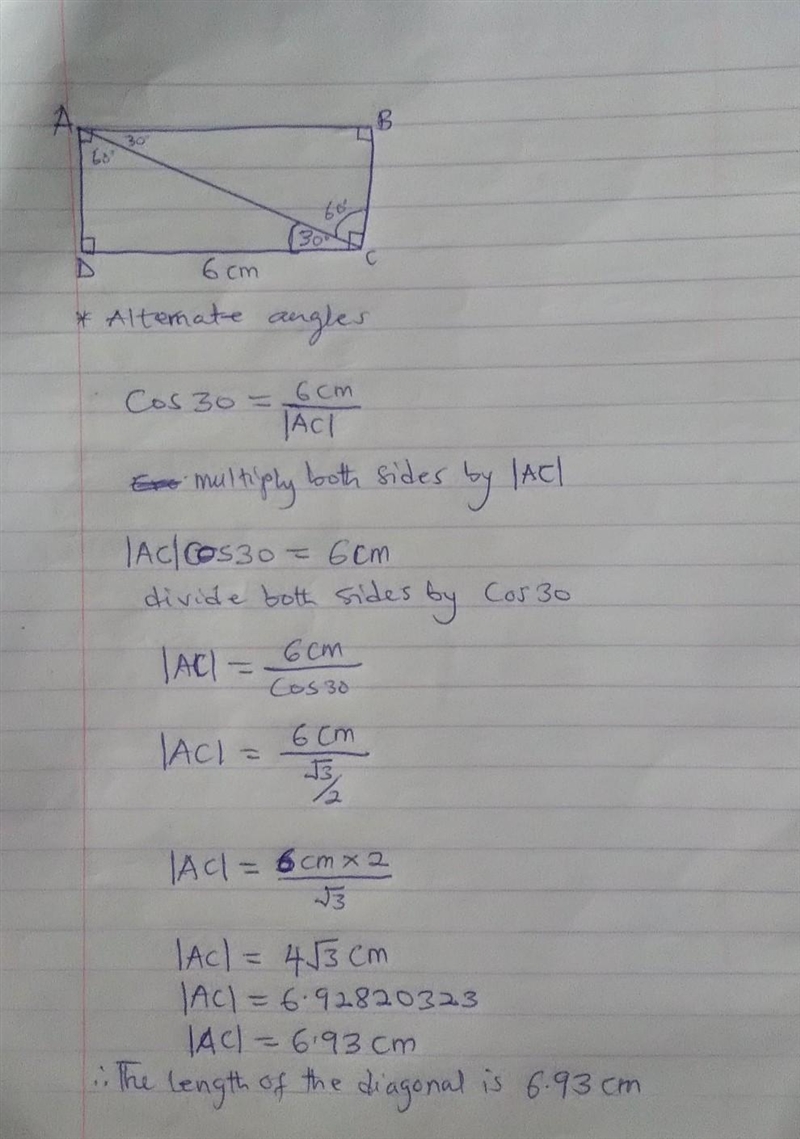 A B
60° 30°
60°
30°
D C
6cm
* Alternate angles
Cos30 = 6cm / |AC|
multiply both sides by |AC|
|AC|cos30 = 6cm
divide both sides by Cos30
|AC| = 6cm / Cos30
|AC| = 6cm / √3/2
|AC| = 6cm × 2 / √3
|AC| = 4√3 cm
|AC| = 6.92820323
|AC| = 6.93 cm
∴ The length of the diagonal is 6.93 cm